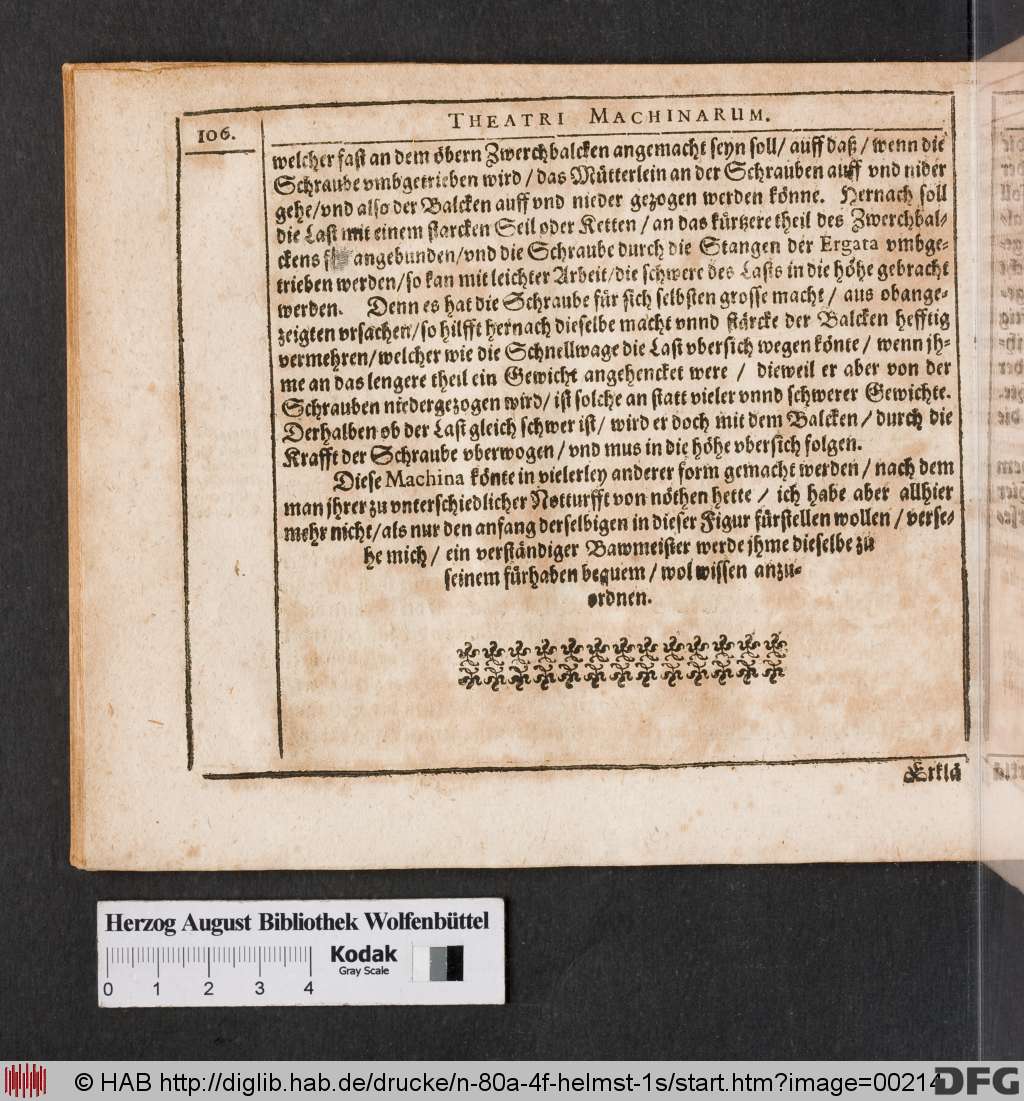 106.
THEATRI MACHINARUM.
welcher fast an dem öbern Zwerchbalcken angemacht seyn soll / auff daß / wenn die
Schraube vmbgetrieben wird / das Mütterlein an der Schrauben auff vnd nider
gehe / vnd also der Balcken auff vnd nieder gezogen werden könne. Hernach soll
die Last mit einem starcken Seil oder Ketten / an das kürtzere theil des Zwerchbal-
ckens angebunden / vnd die Schraube durch die Stangen der Ergata vmbge-
trieben werden / so kan mit leichter Arbeit / die schwere des Lasts in die höhe gebracht
werden. Denn es hat die Schraube für sich selbsten grosse macht / aus obange-
zeigten vrsachen / so hilfft hernach dieselbe macht vnnd stärcke der Balcken hefftig
vermehren / welcher wie die Schnellwage die Last vbersich wegen könte / wenn jh-
me an das lengere theil ein Gewicht angehencket were / dieweil er aber von der
Schrauben niedergezogen wird / ist solche an statt vieler vnnd schwerer Gewichte.
Derhalben ob der Last gleich schwer ist / wird er doch mit dem Balcken / durch die
Krafft der Schraube vberwogen / vnd mus in die höhe vbersich folgen.
Diese Machina könte in vielerley anderer form gemacht werden / nach dem
man jhrer zu vnterschiedlicher Notturfft von nöthen hette / ich habe aber allhier
mehr nicht / als nur den anfang derselbigen in dieser Figur fürstellen wollen / verse-
he mich / ein verständiger Bawmeister werde jhme dieselbe zu
seinem fürhaben bequem / wol wissen anzu-
ordnen.
Erklä
Herzog August Bibliothek Wolfenbüttel
Kodak
Gray Scale
0 1 2 3 4
© HAB http://diglib.hab.de/drucke/n-80a-4f-helmst-1s/start.htm?image=00214
DFG